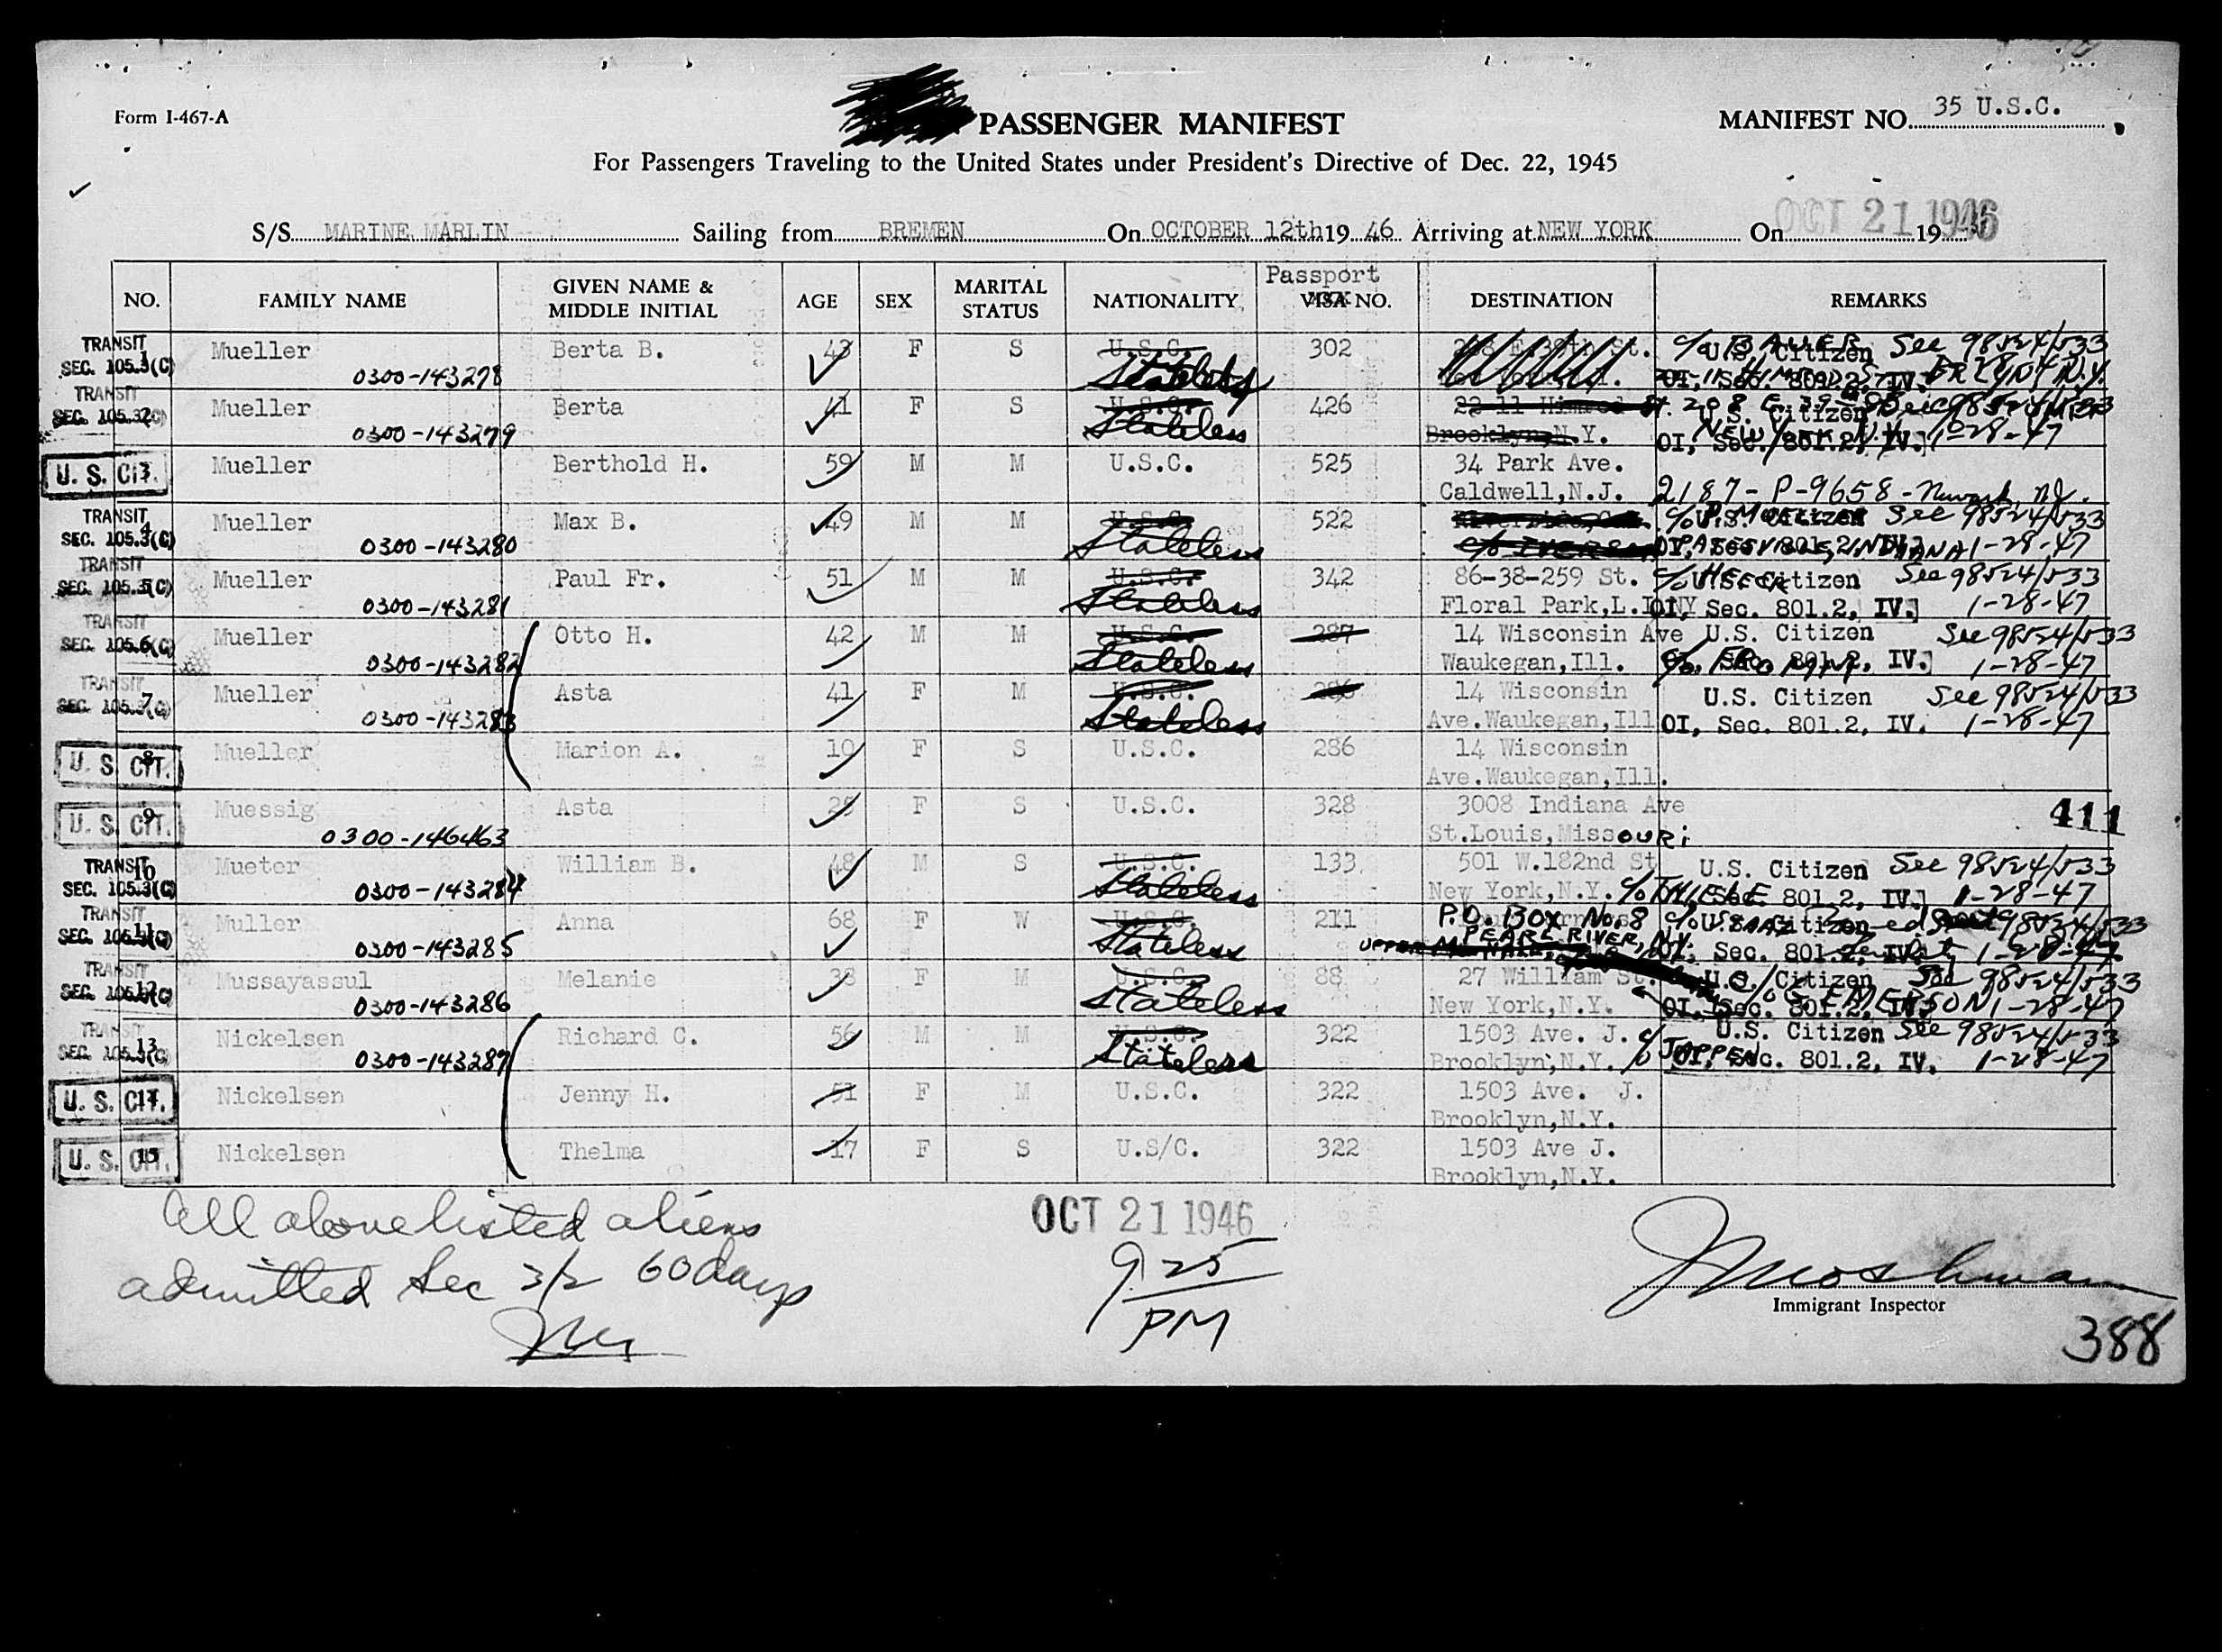 Form I-467-A
PASSENGER MANIFEST
MANIFEST NO. 35 U.S.C.
For Passengers Traveling to the United States under President's Directive of Dec. 22, 1945
S/S MARINE MARLIN Sailing from BREMEN On OCTOBER 12th 19 46 Arriving at NEW YORK On OCT 21 1946 19
NO. FAMILY NAME GIVEN NAME & MIDDLE INITIAL AGE SEX MARITAL STATUS NATIONALITY Passport VISA NO. DESTINATION REMARKS
TRANSIT SEC. 105.3(C) 1 Mueller Berta B. 43 F S U.S.C. 302 St. c/o BAUER U.S. Citizen See 98524/533
0300-143278 Stateless OI, Sec. 801.2, IV. N.Y.
TRANSIT SEC. 105.3(C) 2 Mueller Berta 41 F S U.S.C. 426 22 11 Himrod St. 208 E. 39 U.S. Citizen
0300-143279 Stateless Brooklyn, N.Y. NEW YORK OI, Sec. 801.2, IV. 1-28-47
U. S. CIT. 3 Mueller Berthold H. 59 M M U.S.C. 525 34 Park Ave.
Caldwell, N.J. 2187-P-9658-Newark, NJ.
TRANSIT SEC. 105.3(C) 4 Mueller Max B. 49 M M U.S.C. 522 c/o MUELLER U.S. Citizen See 98524/533
0300-143280 Stateless OI, Sec. 801.2, IV. INDIANA 1-28-47
TRANSIT SEC. 105.3(C) 5 Mueller Paul Fr. 51 M M U.S.C. 342 86-38-259 St. U.S. Citizen See 98524/533
0300-143281 Stateless Floral Park, L.I. NY OI, Sec. 801.2, IV. 1-28-47
TRANSIT SEC. 105.3(C) 6 Mueller Otto H. 42 M M U.S.C. 287 14 Wisconsin Ave U.S. Citizen See 98524/533
0300-143282 Stateless Waukegan, Ill. 801.2, IV. 1-28-47
TRANSIT SEC. 105.3(C) 7 Mueller Asta 41 F M U.S.C. 286 14 Wisconsin U.S. Citizen See 98524/533
0300-143283 Stateless Ave. Waukegan, Ill OI, Sec. 801.2, IV. 1-28-47
U. S. CIT. 8 Mueller Marion A. 10 F S U.S.C. 286 14 Wisconsin
Ave. Waukegan, Ill.
U. S. CIT. 9 Muessig Asta 25 F S U.S.C. 328 3008 Indiana Ave 411
0300-146463 St. Louis, Missouri
TRANSIT SEC. 105.3(C) 10 Mueter William B. 48 M S U.S.C. 133 501 W. 182nd St U.S. Citizen See 98524/533
0300-143284 Stateless New York, N.Y. c/o THIELE Sec. 801.2, IV. 1-28-47
TRANSIT SEC. 105.3(C) 11 Muller Anna 68 F W U.S.C. 211 P.O. BOX No. 8 U.S. Citizen 98524/533
0300-143285 Stateless PEARL RIVER, N.Y. OI, Sec. 801.2, IV. 1-28-47
TRANSIT SEC. 105.3(C) 12 Mussayassul Melanie 38 F U.S.C. 88 27 William St. U.S. Citizen See 98524/533
0300-143286 Stateless New York, N.Y. c/o G. EMERSON OI, Sec. 801.2, IV. 1-28-47
TRANSIT SEC. 105.3(C) 13 Nickelsen Richard C. 56 M M U.S.C. 322 1503 Ave. J. U.S. Citizen See 98524/533
0300-143287 Stateless Brooklyn, N.Y. c/o TAPPEN OI, Sec. 801.2, IV. 1-28-47
U. S. CIT. 14 Nickelsen Jenny H. 51 F M U.S.C. 322 1503 Ave. J.
Brooklyn, N.Y.
U. S. CIT. 15 Nickelsen Thelma 17 F S U.S/C. 322 1503 Ave J.
Brooklyn, N.Y.
All above listed aliens
admitted Sec 3/2 60 days
OCT 21 1946
9 25
PM
Immigrant Inspector
388